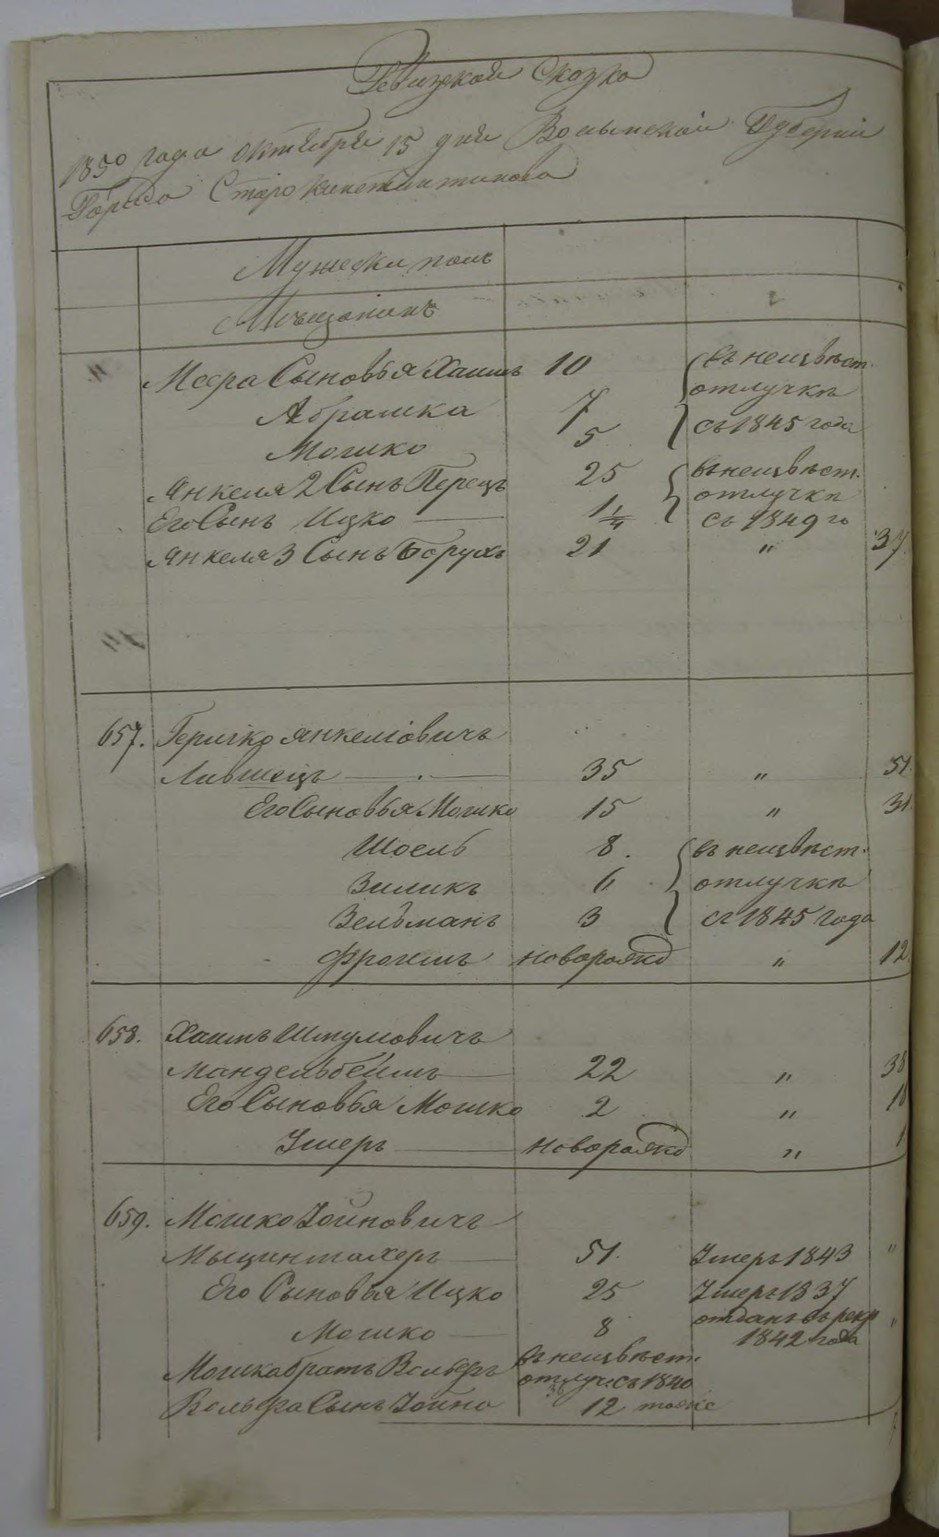 Ревизская Сказка
1850 года октября 15 дня Волынской Губернии
Города Староконстантинова
Мужеска полъ
Мѣщанинъ
Меера Сыновья Хаимъ 10 въ неизвѣст.
отлучкѣ
Абрашка 7 съ 1845 года
Мошко 5
Янкеля 2 Сынъ Перецъ 25 въ неизвѣст.
отлучкѣ
Его Сынъ Ицко 1 1/4 съ 1849 го
Янкеля 3 Сынъ Борухъ 21 " 37.
657. Гершко Янкеліовичъ
Лившецъ 35 " 51.
Его Сыновья Мошко 15 " 31.
Шоель 8. въ неизвѣст.
Зиликъ 6 отлучкѣ
Зельманъ 3 съ 1845 года
Фроимъ новорожд " 12.
658. Хаимъ Шмуловичъ
Мандельбеймъ 22 " 38
Его Сыновья Мошко 2 " 18
новорожд " 1
659. Мошко Іойновичъ
51. Умеръ 1843 "
Его Сыновья Ицко 25 Умеръ 1837
отданъ въ рекр
Мошко 8 1842 года "
Мошка братъ Вольфъ въ неизвѣст.
отлуч съ 1840
Вольфа Сынъ Іойна 12 тоже